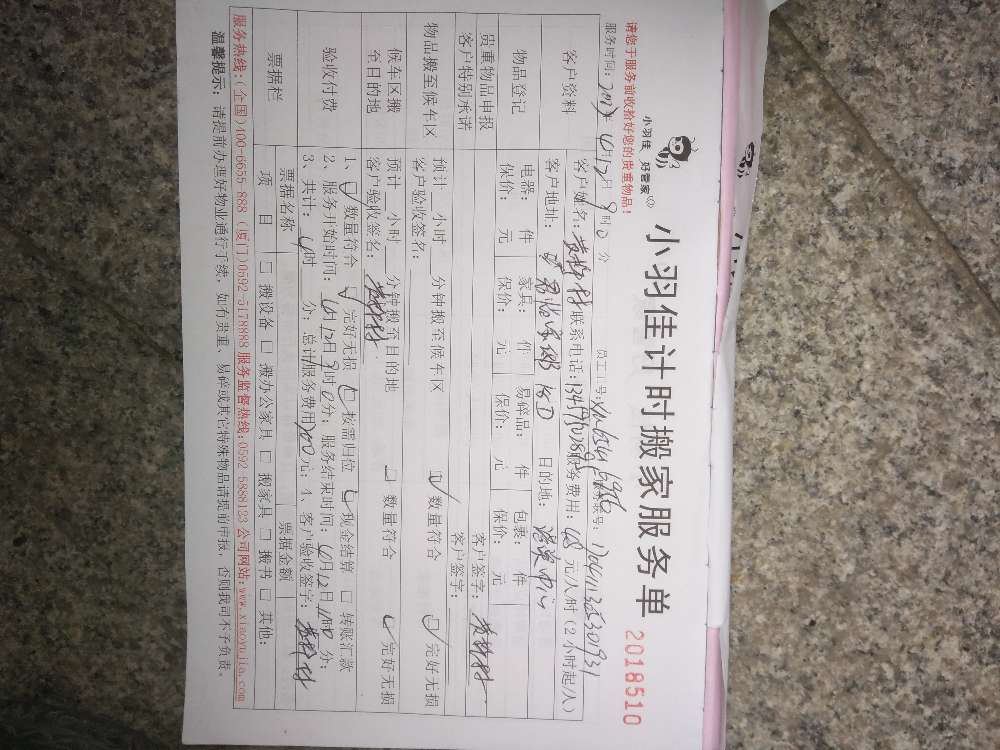 小羽佳 好管家
小羽佳计时搬家服务单
2018510
请您于服务前收拾好您的贵重物品!
服务时间: 2017年 4月12日 9时0分 员工号: 联号:
客户资料
客户姓名: 联系电话: 服务费用: 元/人/时(2小时起/人)
客户地址: 目的地:
物品登记
电器: 件 家具: 件 易碎品: 件 包裹: 件
保价: 元 保价: 元 保价: 元 保价: 元
贵重物品申报 客户签字:
客户特别承诺 客户签字:
物品搬至候车区
预计 小时 分钟搬至候车区 数量符合 完好无损
客户验收签名:
候车区搬至目的地
预计 小时 分钟搬至目的地 数量符合 完好无损
客户验收签名:
验收付费
1、数量符合 完好无损 按需归位 现金结算 转账汇款
2、服务开始时间: 4月12日9时0分; 服务结束时间: 4月12日 分;
3、共计: 时 分; 总计服务费用 元; 4、客户验收签字:
票据栏
票据名称 票据金额
项 目 搬设备 搬办公家具 搬家具 搬书 其他:
服务热线:(全国)400-6655-888 (厦门)0592-5178888 服务监督热线:0592 5888123 公司网站:www.xiaoyujia.com
温馨提示: 请提前办理好物业通行手续, 如有贵重、易碎或其它特殊物品请提前申报, 否则我司不予负责。